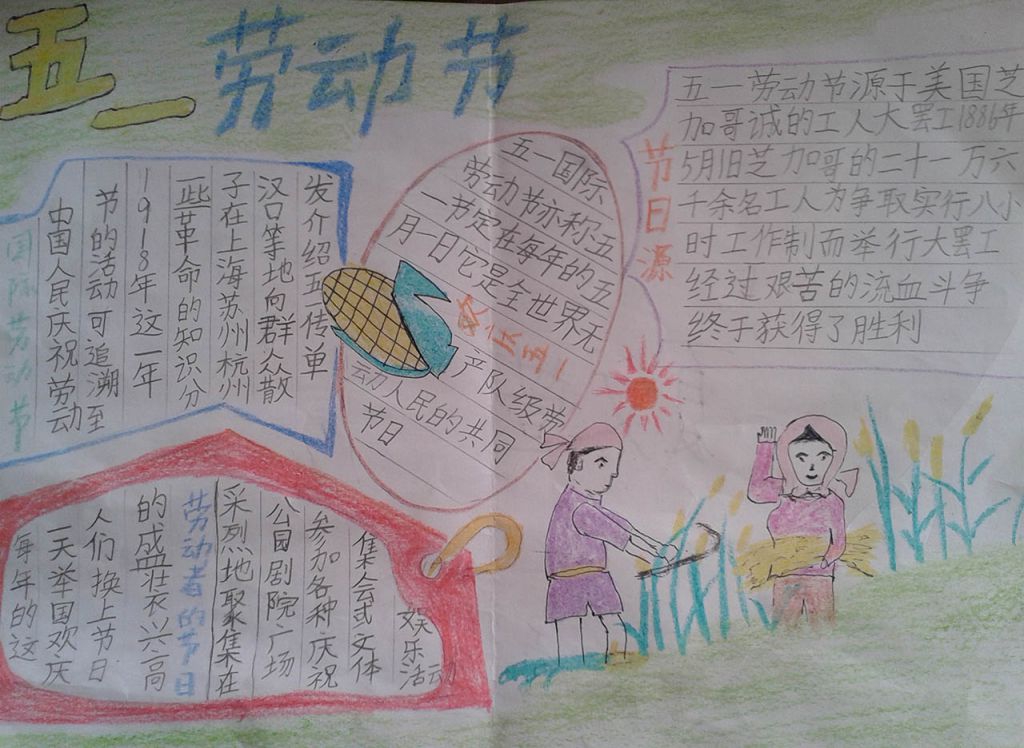 五一劳动节
国际劳动节
由国人民庆祝劳动
节的活动可追溯至
1918年这一年
一些革命的知识分
子在上海苏州杭州
汉口等地向群众散
发介绍五一传单
五一国际
劳动节亦称五
一节定在每年的五
月一日它是全世界无
产队级劳
动人民的共同
节日
五一
节日源
五一劳动节源于美国芝
加哥诚的工人大罢工1886年
5月1日芝加哥的二十一万六
千余名工人为争取实行八小
时工作制而举行大罢工
经过艰苦的流血斗争
终于获得了胜利
每年的这
一天举国欢庆
人们换上节日
的盛装兴高
劳动者的节日
采烈地聚集在
公园剧院广场
参加各种庆祝
集会式文体
娱乐活动